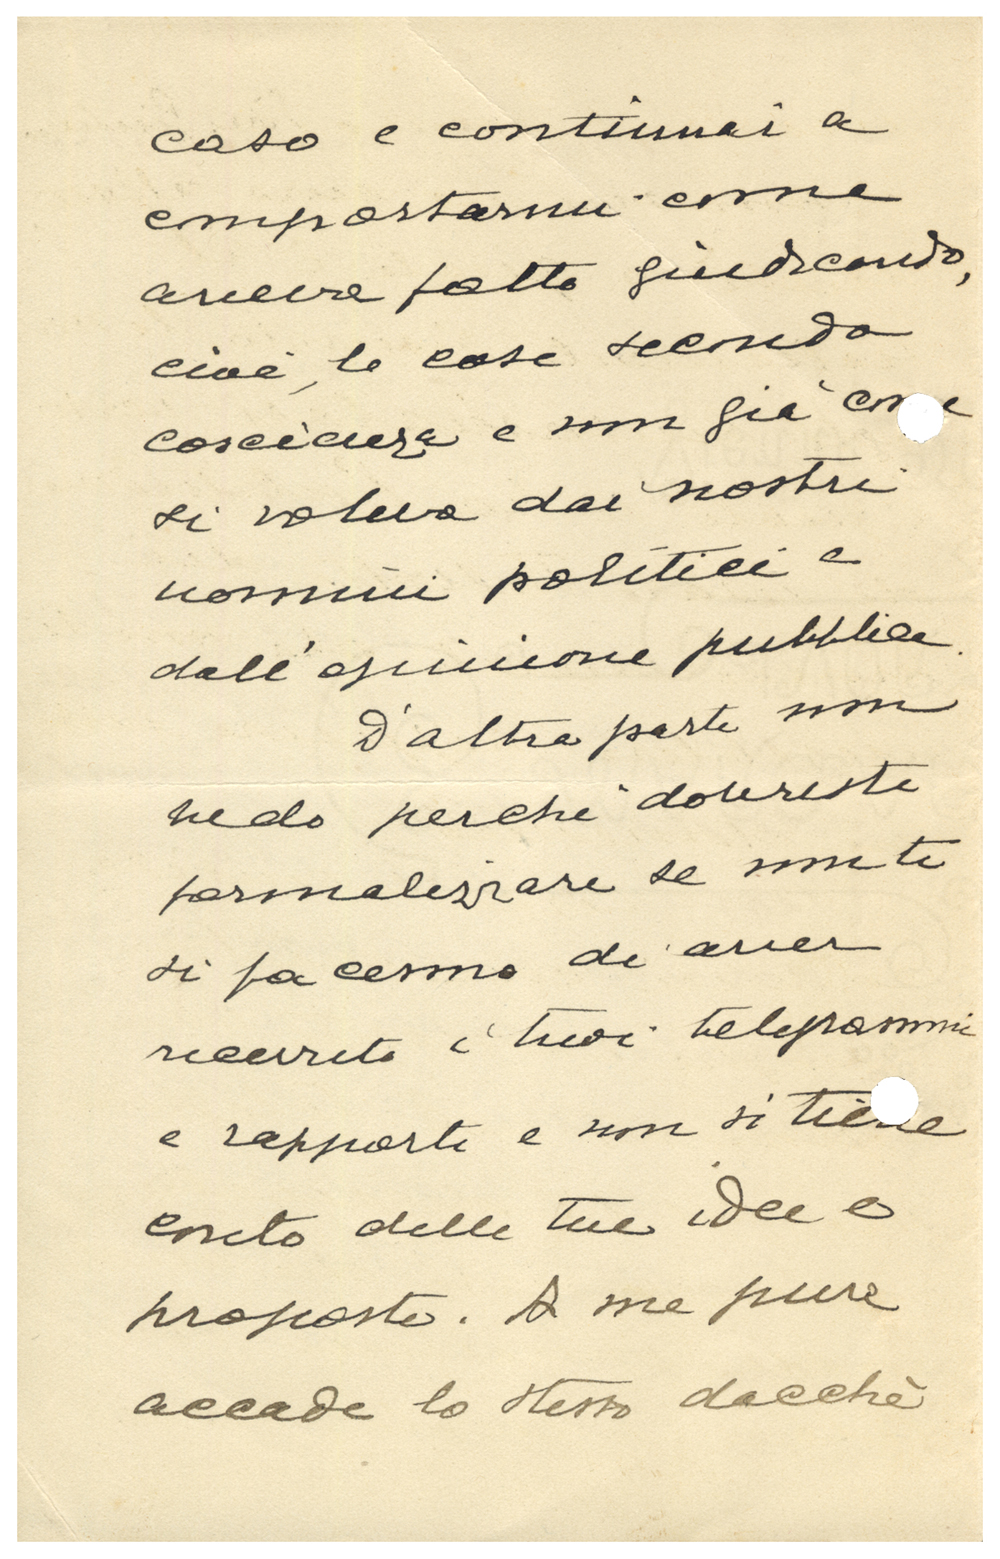 caso e continuai a
comportarmi come
aveva fatto giudicando,
cioè, le cose secondo
coscienza e non già come
si voleva dai nostri
uomini politici e
dall'opinione pubblica.
D'altra parte non
vedo perchè dovreste
formalizzare se non te
si fa cenno di aver
ricevuto i tuoi telegrammi
e rapporti e non si tiene
conto delle tue idee e
proposte. A me pure
accade lo stesso dacchè